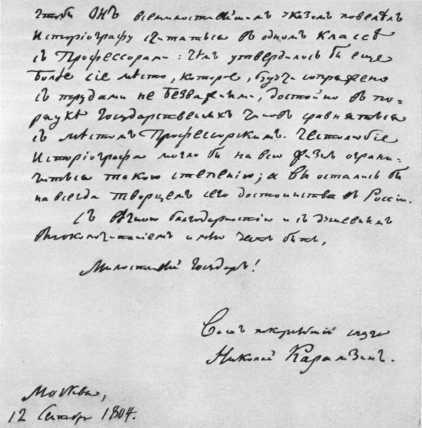 чтобы Онъ всемилостивѣйшимъ указомъ повелѣлъ
Исторіографу считаться въ одномъ классѣ
съ Профессорами: чѣмъ утвердилось бы еще
болѣе сіе мѣсто, которое, будучи сопряжено
съ трудами не безважными, достойно въ по-
рядкѣ Государственныхъ чиновъ сравняться
съ мѣстомъ Профессорскимъ. Честолюбіе
Исторіографа могло бы на всю жизнь ограни-
читься такою степенью; а Вы остались бы
на всегда творцемъ сего достоинства въ Россіи.
Съ вѣчною благодарностію и съ душевнымъ
высокопочитаніемъ имѣю честь быть,
Милостивый Государь!
Вашъ покорнѣйшій слуга
Николай Карамзинъ.
Москва,
12 Сентябр 1804.